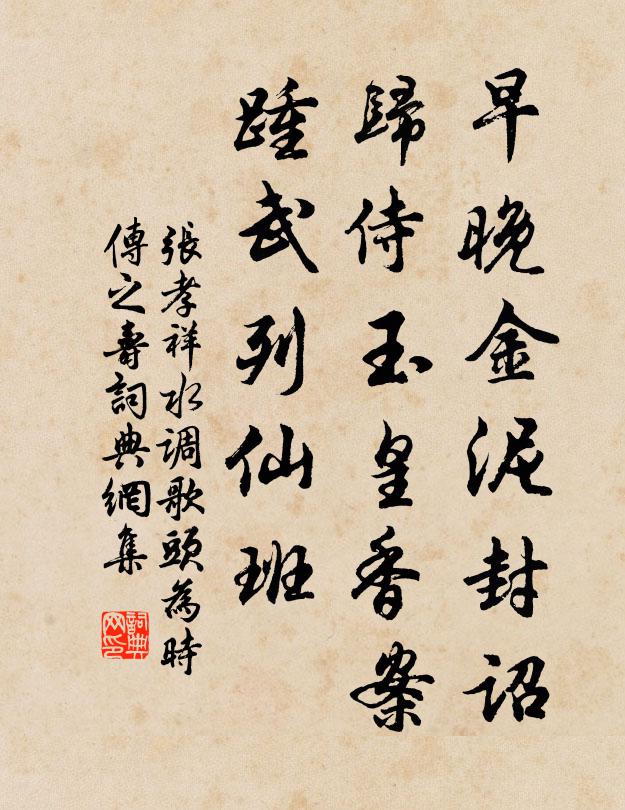 早晚金泥封詔
歸侍玉皇香案
踵武列仙班
張孝祥水调歌頭為時
傳之壽詞典網集
詞典网印